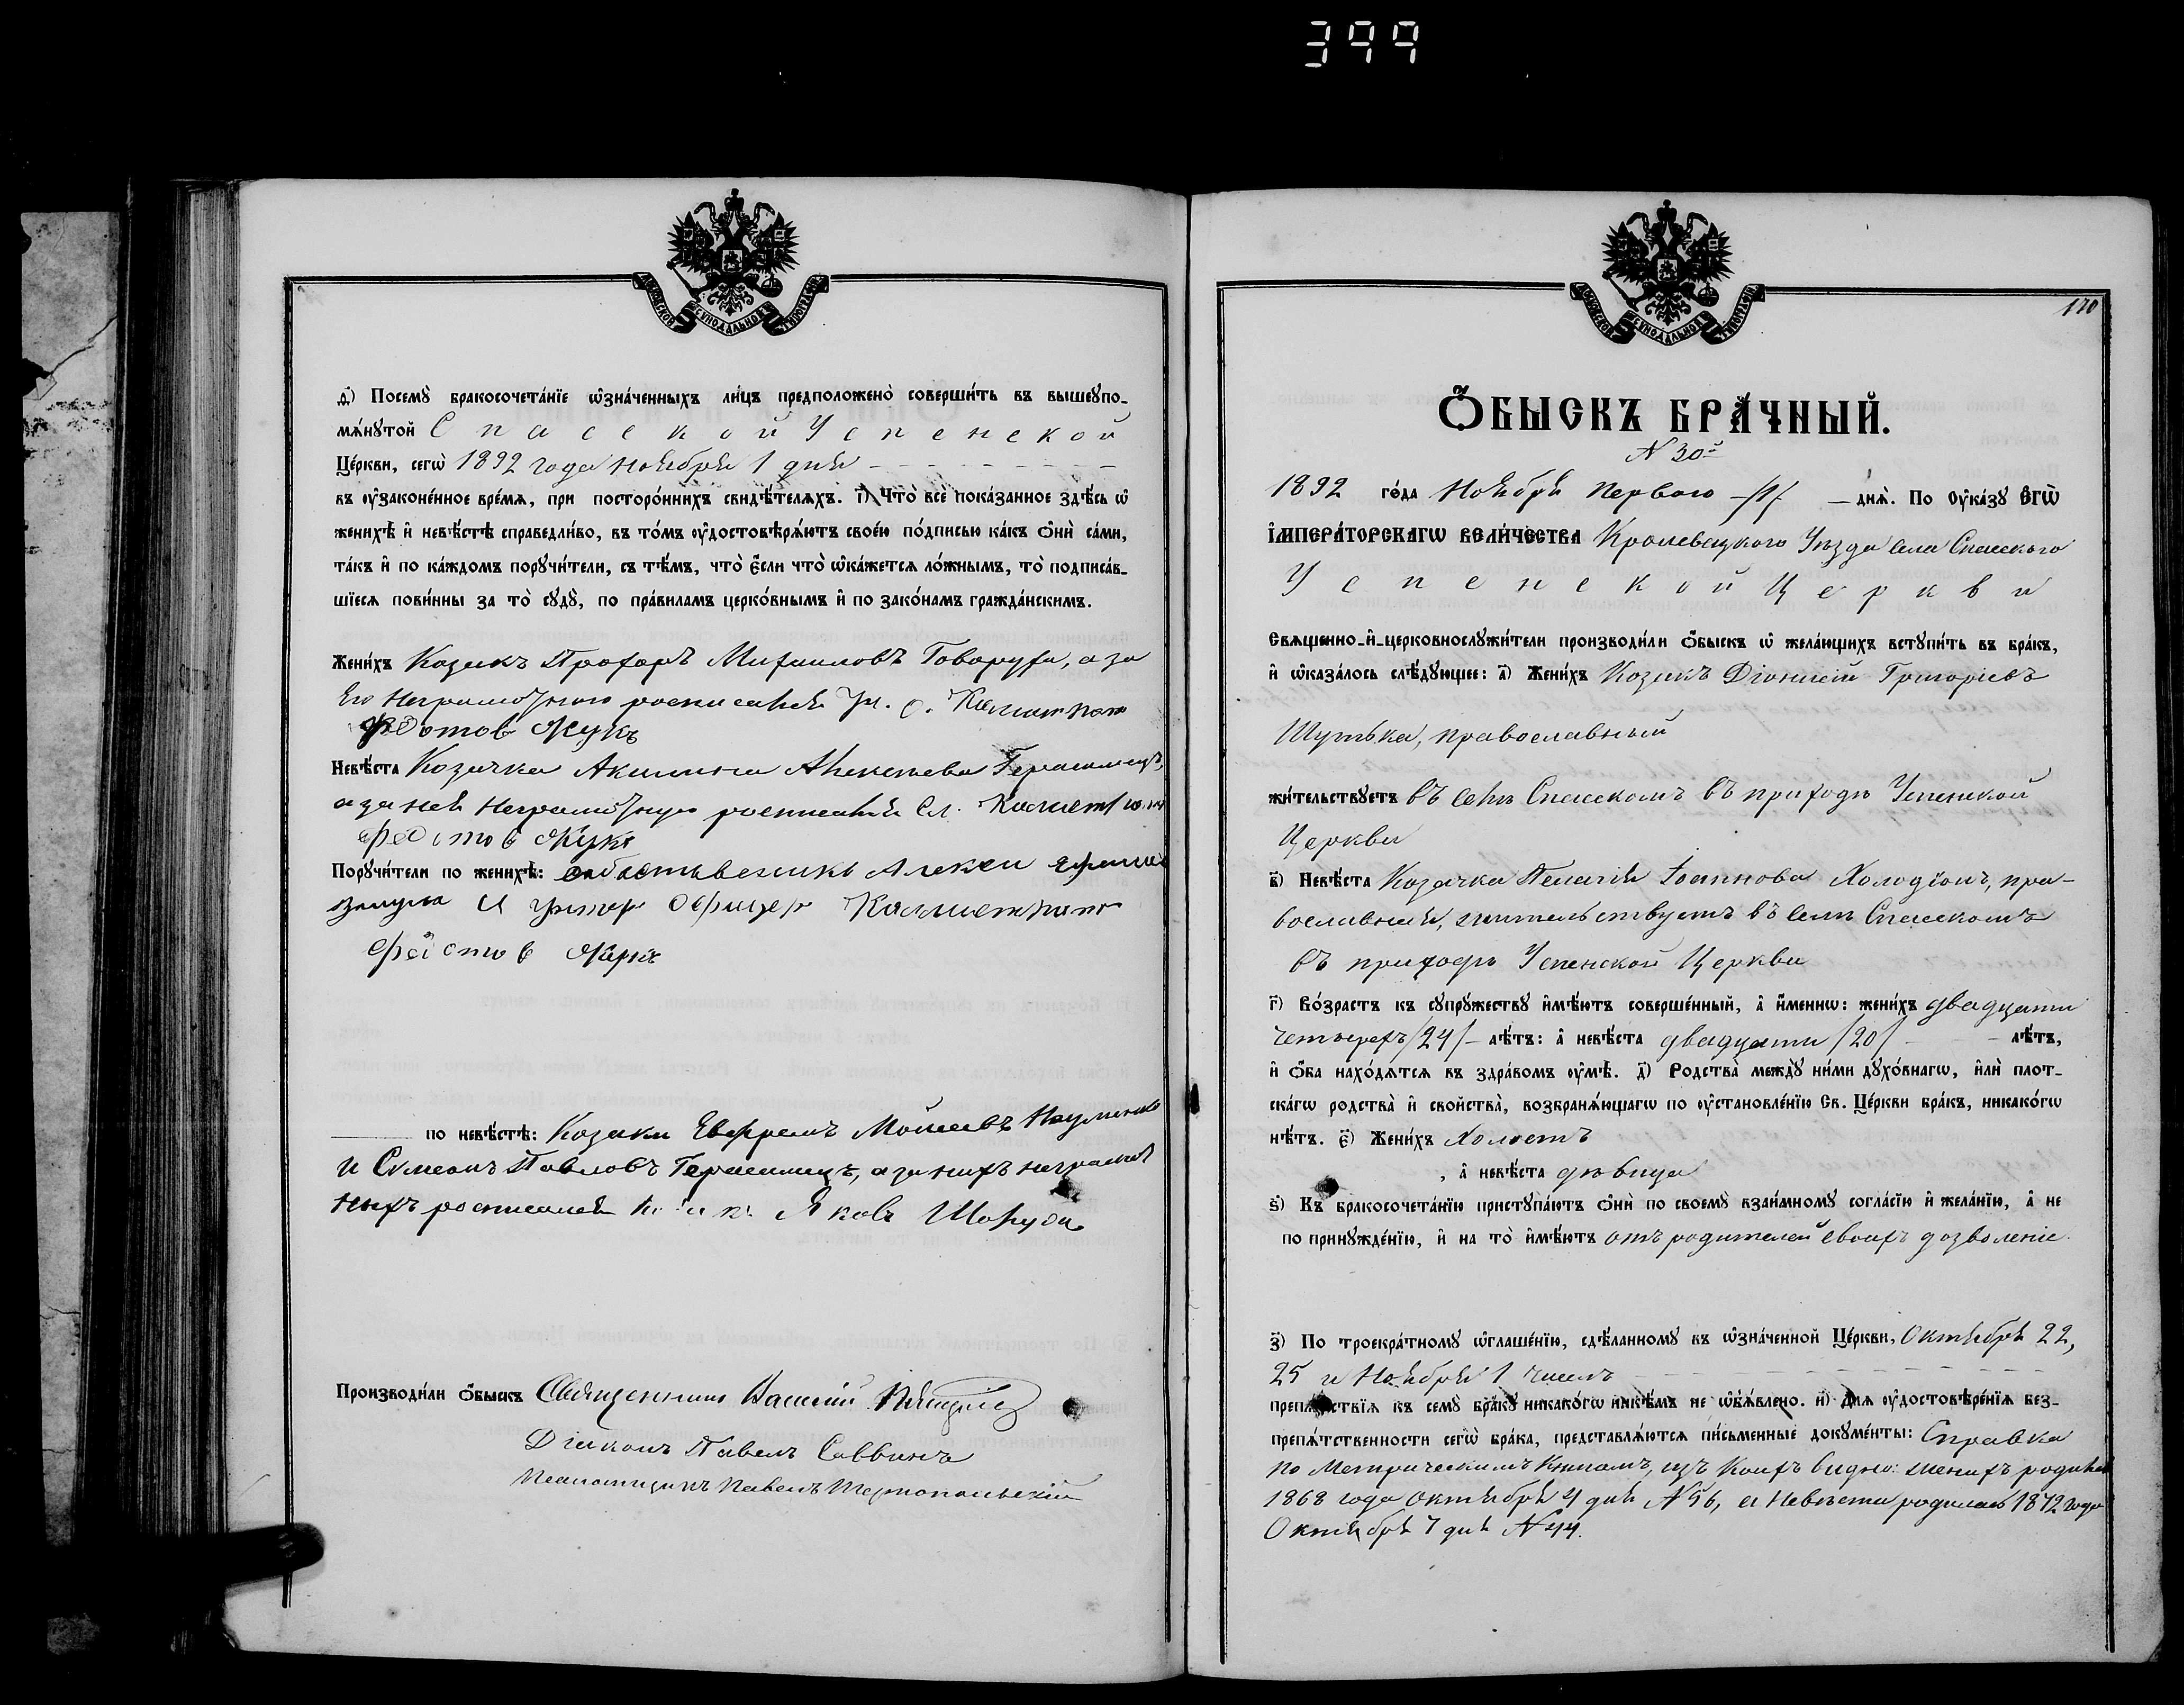 399
МОСКОВСКОЙ СѴНОДАЛЬНОЙ ТИПОГРАФІИ
ѳ҃) Посемꙋ̀ бракосочета́нїе ѡ҆зна́ченныхъ ли́цъ предположено̀ соверши́ть въ вышеꙋпо-
мѧ́нꙋтой Спасской Успенской
Це́ркви, сегѡ̀ 1892 года Ноября 1 дня
въ ᲂу҆законе́нное вре́мѧ, при посторо́ннихъ свидѣ́телѧхъ. і҃) Что̀ всѐ пока́занное здѣ́сь ѡ҆
женихѣ̀ и҆ невѣ́стѣ справедли́во, въ то́мъ ᲂу҆достовѣрѧ́ютъ свое́ю по́дписью ка́къ ѻ҆нѝ са́ми,
та́къ и҆ по ка́ждомъ порꙋчи́тели, съ тѣ́мъ, что̀ є҆́сли что̀ ѡ҆ка́жетсѧ ло́жнымъ, то̀ подписа́в-
шїесѧ пови́нны за то̀ сꙋдꙋ̀, по пра́виламъ церко́внымъ и҆ по зако́намъ гражда́нскимъ.
Жени́хъ Козакъ Прохоръ Михаиловъ Говоруха, а за
его неграмотнаго росписался Ун. о. Калистрат
Феотов Жукъ
Невѣ́ста Козачка Акилина Алексеева Герасимецъ,
а за нея неграмотную росписался Ун. Калистрат
Феотов Жукъ
Порꙋчи́тели по женихѣ̀: Алексеи
и унтер Офицер Калистрат
Феотов Жукъ
по невѣ́стѣ: Козаки Евфремъ Моисеевъ Науменко
и Симеонъ Павловъ Герасимецъ, а за нихъ неграмот
ныхъ росписался Яковъ
Производи́ли ѻ҆́быскъ Священникъ Василій
Діаконъ Павелъ Саввинъ
Псаломщикъ Павелъ
МОСКОВСКОЙ СѴНОДАЛЬНОЙ ТИПОГРАФІИ
170
Ѻ҆́БЫСКЪ БРА́ЧНЫЙ.
N 30й
1892 го́да Ноября Перваго /1/ днѧ̀. По ᲂу҆ка́зꙋ ЕГѠ̀
І҆МПЕРА́ТОРСКАГѠ ВЕЛИ́ЧЕСТВА Кролевецкаго Уѣзда села Спасского
Успенской Церкви
Свѧще́нно-и҆-церковнослꙋжи́тели производи́ли ѻ҆́быскъ ѡ҆ жела́ющихъ встꙋпи́ть въ бра́къ,
и҆ ѡ҆каза́лось слѣ́дꙋющее: а҃) Жени́хъ Козакъ Діонисій Григоріевъ
Шутька, православный
жи́тельствꙋетъ въ селѣ Спасскомъ въ приходѣ Успенской
Церкви
в҃) Невѣ́ста Козачка Пелагія Іоаннова Холодіонъ, пра-
вославная, жительствуетъ въ селѣ Спасскомъ
въ приходѣ Успенской Церкви
г҃) Во́зрастъ къ сꙋпрꙋ́жествꙋ и҆мѣ́ютъ соверше́нный, а҆ и҆́меннѡ: жени́хъ двадцати
четырехъ /24/ лѣ́тъ: а҆ невѣ́ста двадцати /20/ лѣ́тъ,
и҆ ѻ҆́ба нахо́дѧтсѧ въ здра́вомъ ᲂу҆мѣ̀. д҃) Родства̀ междꙋ̀ ни́ми дꙋхо́внагѡ, и҆лѝ плот-
ска́гѡ родства̀ и҆ свойства̀, возбранѧ́ющагѡ по ᲂу҆становле́нїю Св. Це́ркви бра́къ, никако́гѡ
нѣ́тъ. є҃) Жени́хъ Холостъ
, а҆ невѣ́ста дѣвица
ѕ҃) Къ бракосочета́нїю пристꙋпа́ютъ ѻ҆нѝ по своемꙋ̀ взаи́мномꙋ согла́сїю и҆ жела́нїю, а҆ не
по принꙋжде́нїю, и҆ на то̀ и҆мѣ́ютъ отъ родителей своихъ дозволеніе.
з҃) По троекра́тномꙋ ѡ҆глаше́нїю, сдѣ́ланномꙋ въ ѡ҆зна́ченной Це́ркви, Октября 22,
25 и Ноября 1 числъ
препѧ́тствїѧ къ семꙋ̀ бра́кꙋ никако́гѡ никѣ́мъ не ѡ҆б̾ѧ́влено. и҃) Длѧ̀ ᲂу҆достовѣре́нїѧ без-
препѧ́тственности сегѡ̀ бра́ка, представлѧ́ютсѧ пи́сьменные докꙋме́нты: Справка
по Метрическимъ Книгамъ, изъ коихъ видно: женихъ родился
1868 года Октября 4 дня N 56, а Невѣста родилась 1872 года
Октября 7 дня N 44.